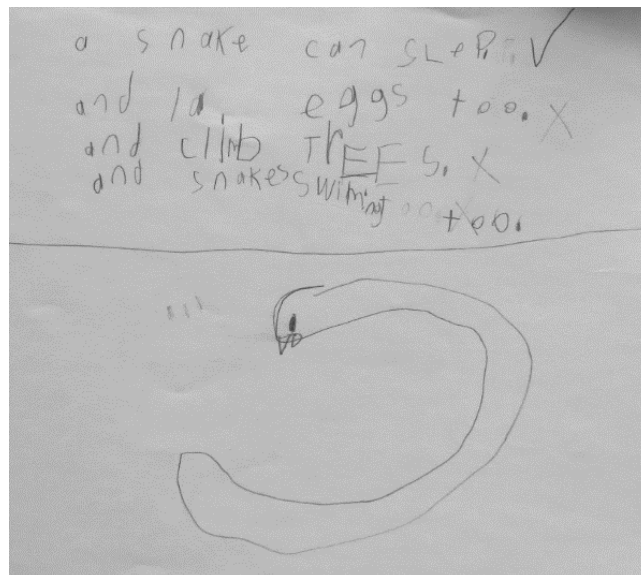 a snake can sLeP. ✓
and la eggs too. X
and climb TrEES. X
and snakes swiming too.